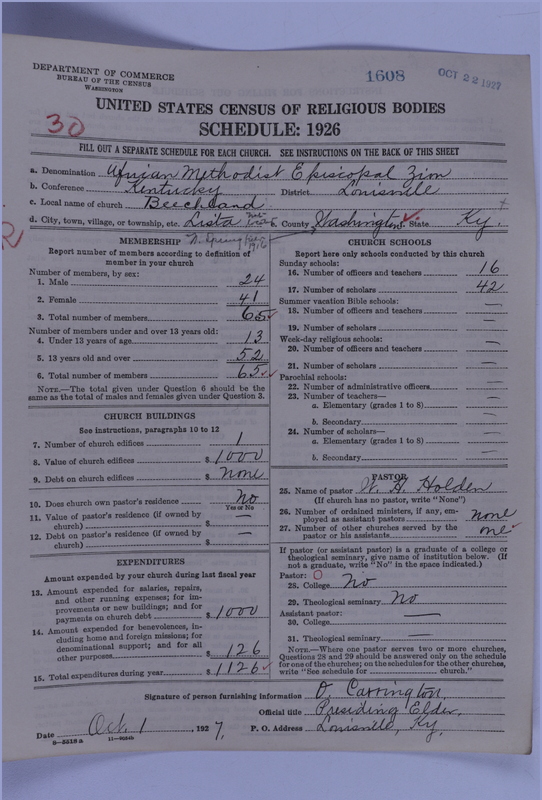 DEPARTMENT OF COMMERCE
BUREAU OF THE CENSUS
WASHINGTON
1608
OCT 22 1927
UNITED STATES CENSUS OF RELIGIOUS BODIES
30
SCHEDULE: 1926
FILL OUT A SEPARATE SCHEDULE FOR EACH CHURCH. SEE INSTRUCTIONS ON THE BACK OF THIS SHEET
a. Denomination African Methodist Episcopal Zion
b. Conference Kentucky District Louisville
c. Local name of church Beechland
d. City, town, village, or township, etc. Lista County Washington State Ky.
R
MEMBERSHIP
Report number of members according to definition of
member in your church
Number of members, by sex:
1. Male 24
2. Female 41
3. Total number of members 65
Number of members under and over 13 years old:
4. Under 13 years of age 13
5. 13 years old and over 52
6. Total number of members 65
NOTE.—The total given under Question 6 should be the
same as the total of males and females given under Question 3.
CHURCH BUILDINGS
See instructions, paragraphs 10 to 12
7. Number of church edifices 1
8. Value of church edifices $ 1000
9. Debt on church edifices $ None
10. Does church own pastor's residence No
Yes or No
11. Value of pastor's residence (if owned by
church) $ —
12. Debt on pastor's residence (if owned by
church) $ —
EXPENDITURES
Amount expended by your church during last fiscal year
13. Amount expended for salaries, repairs,
and other running expenses; for im-
provements or new buildings; and for
payments on church debt $ 1000
14. Amount expended for benevolences, in-
cluding home and foreign missions; for
denominational support; and for all
other purposes $ 126
15. Total expenditures during year $ 1126
CHURCH SCHOOLS
Report here only schools conducted by this church
Sunday schools:
16. Number of officers and teachers 16
17. Number of scholars 42
Summer vacation Bible schools:
18. Number of officers and teachers —
19. Number of scholars —
Week-day religious schools:
20. Number of officers and teachers —
21. Number of scholars —
Parochial schools:
22. Number of administrative officers —
23. Number of teachers—
a. Elementary (grades 1 to 8) —
b. Secondary —
24. Number of scholars—
a. Elementary (grades 1 to 8) —
b. Secondary —
PASTOR
25. Name of pastor W. H. Holden
(If church has no pastor, write "None")
26. Number of ordained ministers, if any, em-
ployed as assistant pastors none
27. Number of other churches served by the
pastor or his assistants one
If pastor (or assistant pastor) is a graduate of a college or
theological seminary, give name of institution below. (If
not a graduate, write "No" in the space indicated.)
Pastor: O
28. College No
29. Theological seminary No
Assistant pastor:
30. College —
31. Theological seminary —
NOTE.—Where one pastor serves two or more churches,
Questions 28 and 29 should be answered only on the schedule
for one of the churches; on the schedules for the other churches,
write "See schedule for church."
Signature of person furnishing information O. Carrington,
Official title Presiding Elder,
Date Oct. 1 1927, P. O. Address Louisville, Ky,
8-5518a